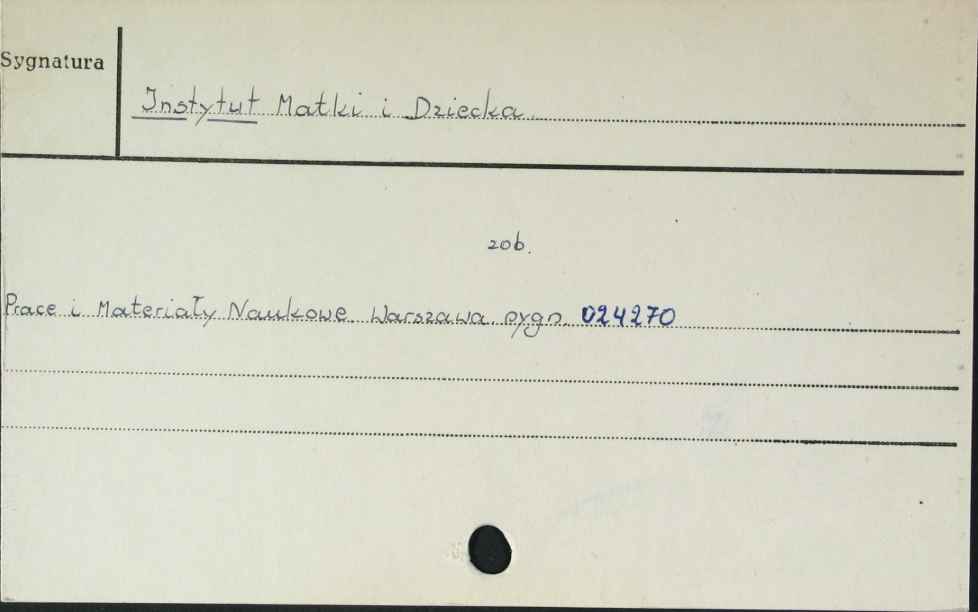 Sygnatura
Instytut Matki i Dziecka.
zob.
Prace i Materiały Naukowe. Warszawa sygn. 024270